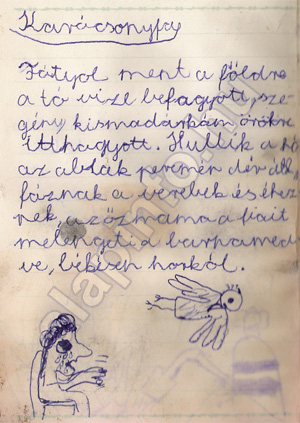 Karácsonyfa
Fátyol ment a földre
a tó vize befagyott, sze-
gény kismadárkám örökre
itthagyott. Hullik a hó
az ablak peremén dér áll,
fáznak a verebek és éhez-
nek, az őzmama a fiait
melengeti a barnamed-
ve, békésen horkol.